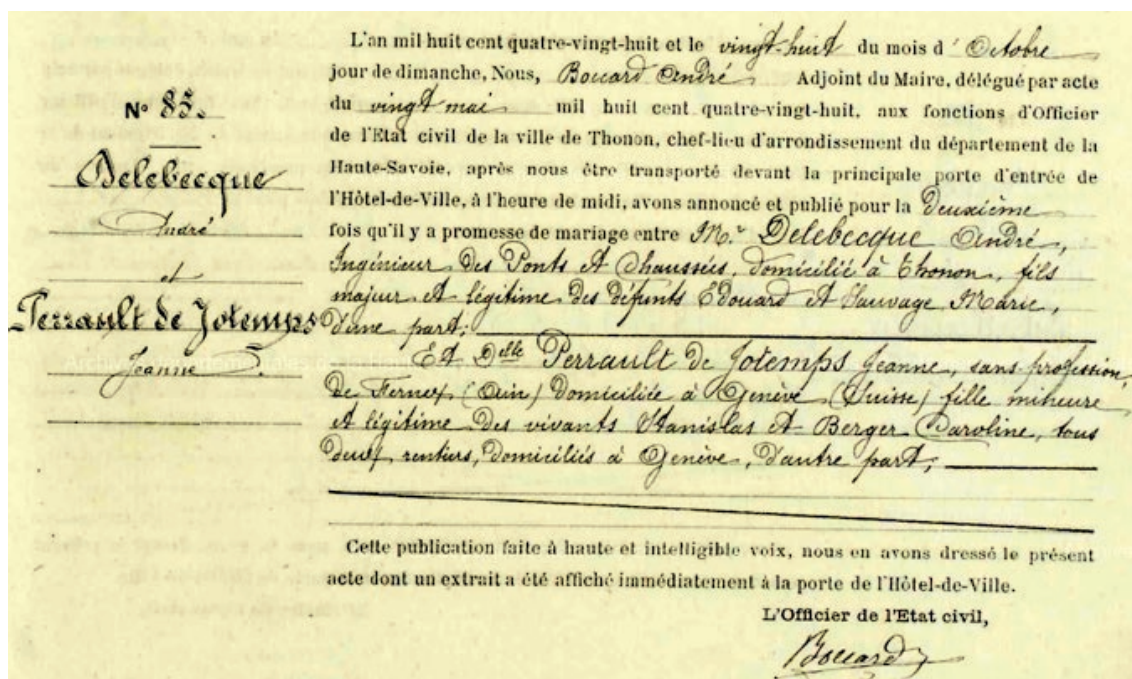 L'an mil huit cent quatre-vingt-huit et le vingt-huit du mois d'Octobre
jour de dimanche, Nous, Boccard André Adjoint du Maire, délégué par acte
du vingt mai mil huit cent quatre-vingt-huit, aux fonctions d'Officier
de l'Etat civil de la ville de Thonon, chef-lieu d'arrondissement du département de la
Haute-Savoie, après nous être transporté devant la principale porte d'entrée de
l'Hôtel-de-Ville, à l'heure de midi, avons annoncé et publié pour la Deuxième
fois qu'il y a promesse de mariage entre Mr. Delebecque André,
Ingénieur des Ponts et Chaussées, domicilié à Thonon, fils
majeur et légitime des défunts Edouard et Sauvage Marie,
d'une part;
Et Delle Perrault de Jotemps Jeanne, sans profession,
de Fernex (Ain) domiciliée à Genève (Suisse) fille mineure
et légitime des vivants Stanislas et Berger Caroline, tous
deux rentiers, domiciliés à Genève, d'autre part;
Cette publication faite à haute et intelligible voix, nous en avons dressé le présent
acte dont un extrait a été affiché immédiatement à la porte de l'Hôtel-de-Ville.
L'Officier de l'Etat civil,
Boccard
N° 85.
Delebecque
André
et
Perrault de Jotemps
Jeanne